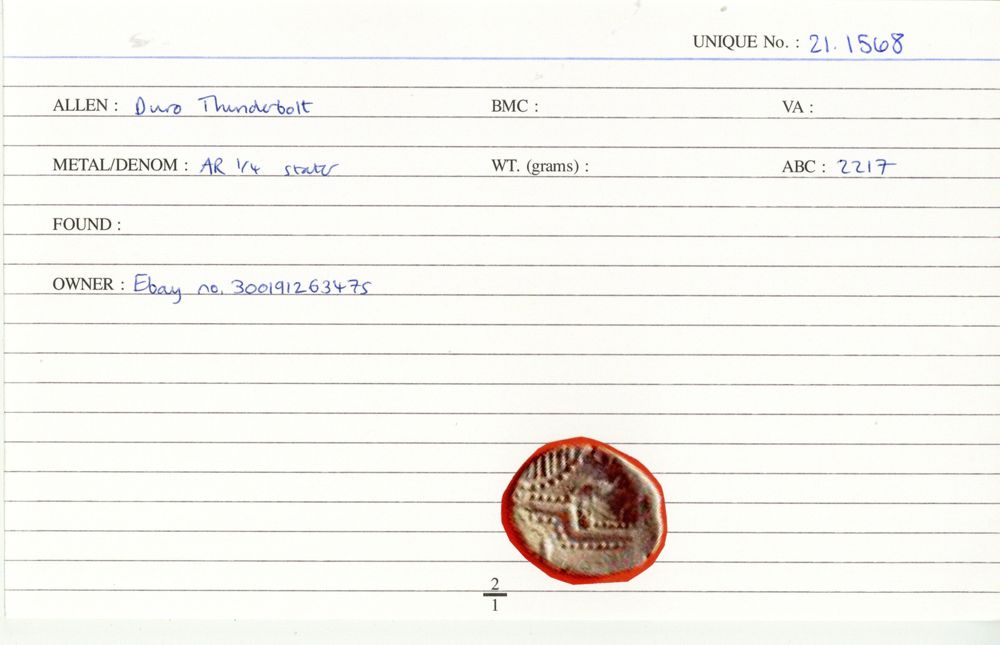 UNIQUE No. : 21.1568
ALLEN : Duro Thunderbolt BMC : VA :
METAL/DENOM : AR 1/4 stater WT. (grams) : ABC : 2217
FOUND :
OWNER : Ebay no. 300191263475
2
1